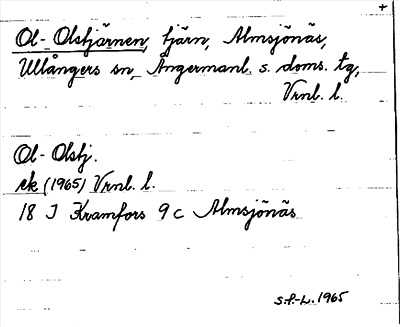 +
Ol-Olstjärnen, tjärn, Almsjönäs,
Ullångers sn, Ångermanl. s. doms. tg,
Vrnl. l.
Ol-Olstj.
ek (1965) Vrnl. l.
18 J Kramfors 9 c Almsjönäs
S.P-L. 1965